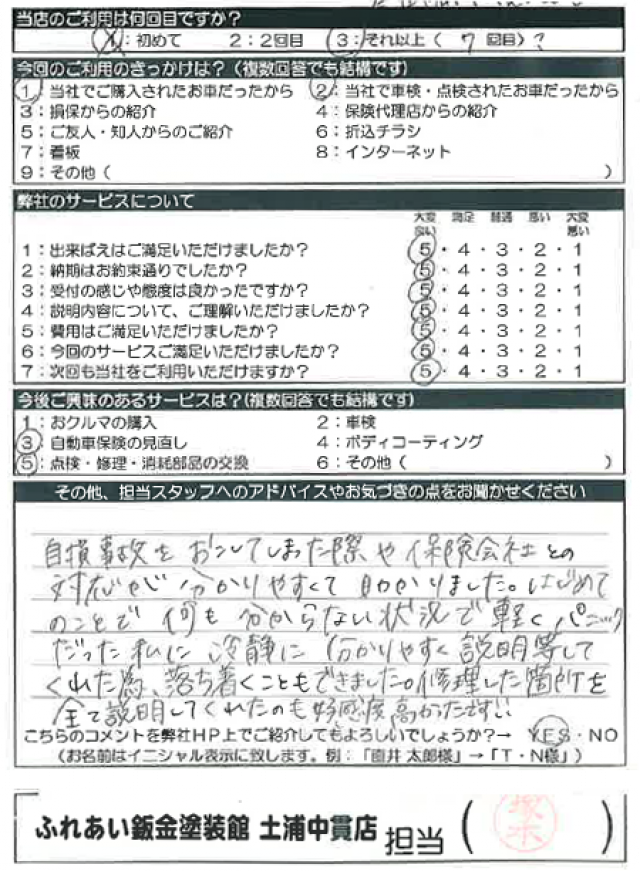 当店のご利用は何回目ですか?
1:初めて 2:2回目 3:それ以上( 7 回目)?
今回のご利用のきっかけは?(複数回答でも結構です)
1:当社でご購入されたお車だったから 2:当社で車検・点検されたお車だったから
3:損保からの紹介 4:保険代理店からの紹介
5:ご友人・知人からのご紹介 6:折込チラシ
7:看板 8:インターネット
9:その他( )
弊社のサービスについて
大変良い 満足 普通 悪い 大変悪い
1:出来ばえはご満足いただけましたか? 5・4・3・2・1
2:納期はお約束通りでしたか? 5・4・3・2・1
3:受付の感じや態度は良かったですか? 5・4・3・2・1
4:説明内容について、ご理解いただけましたか? 5・4・3・2・1
5:費用はご満足いただけましたか? 5・4・3・2・1
6:今回のサービスご満足いただけましたか? 5・4・3・2・1
7:次回も当社をご利用いただけますか? 5・4・3・2・1
今後ご興味のあるサービスは?(複数回答でも結構です)
1:おクルマの購入 2:車検
3:自動車保険の見直し 4:ボディコーティング
5:点検・修理・消耗部品の交換 6:その他( )
その他、担当スタッフへのアドバイスやお気づきの点をお聞かせください
自損事故をおこしてしまった際や保険会社との
対応が分かりやすくて助かりました。はじめて
のことで何も分からない状況で軽くパニック
だった私に冷静に分かりやすく説明等して
くれた為、落ち着くこともできました。修理した箇所を
全て説明してくれたのも好感度高かったです!!
こちらのコメントを弊社HP上でご紹介してもよろしいでしょうか?→ YES・NO
(お名前はイニシャル表示に致します。例:「直井 太郎様」→「T・N様」)
ふれあい鈑金塗装館 土浦中貫店 担当( )